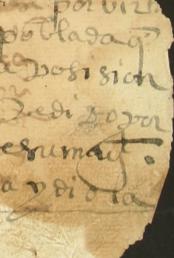 por virt
poblada q
a posision
Pedi So por
e su mag.
a y dio la